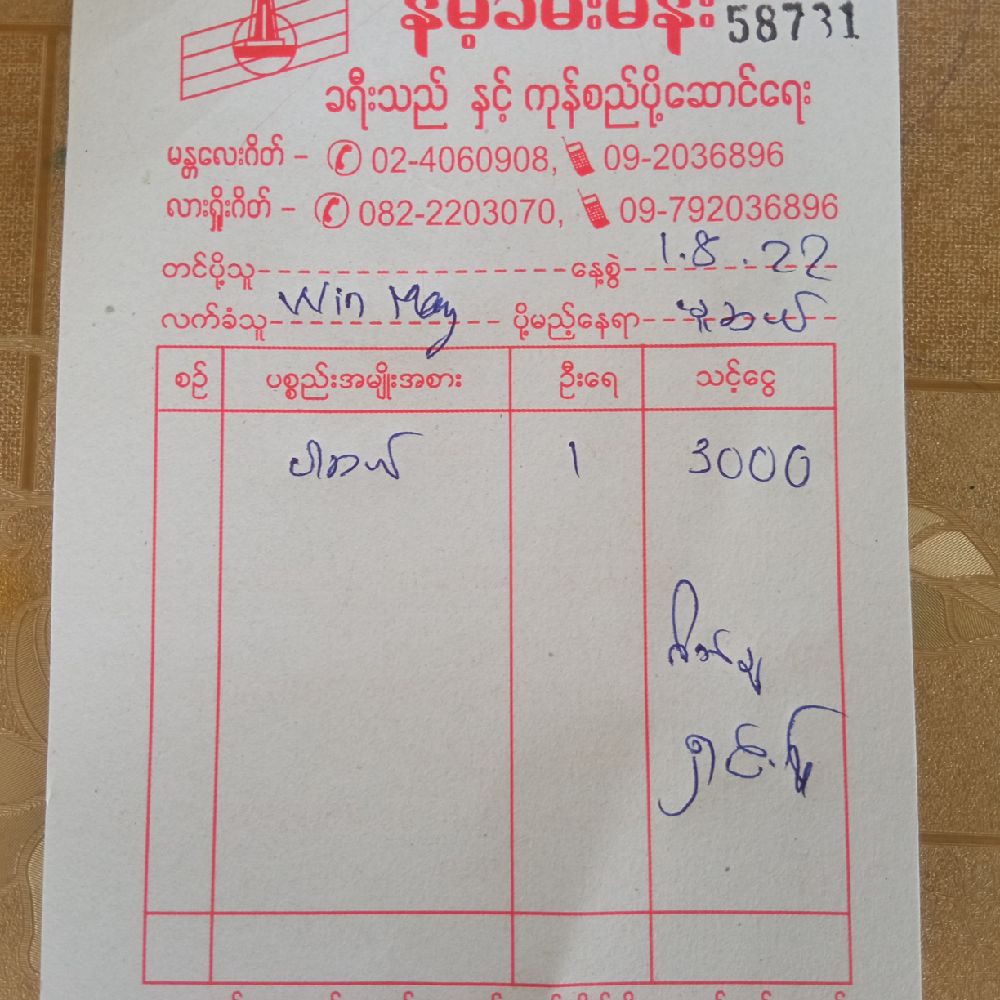 နမ့်ခမ်းမန်း 58731
ခရီးသည် နှင့် ကုန်စည်ပို့ဆောင်ရေး
မန္တလေးဂိတ် - 02-4060908, 09-2036896
လားရှိုးဂိတ် - 082-2203070, 09-792036896
တင်ပို့သူ နေ့စွဲ 1.8.22
လက်ခံသူ Win May ပို့မည့်နေရာ မူဆယ်
စဉ် ပစ္စည်းအမျိုးအစား ဦးရေ သင့်ငွေ
ပါဆယ် 1 3000
ဂိတ်ချ
ရှင်းပြီး